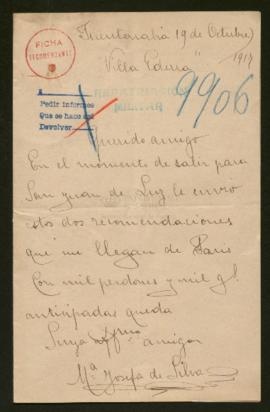 Fuenterrabia 19 de Octubre
1917
"Villa Ederra"
FICHA
A
REPATRIACIÓN
MILITAR
Pedir informes
Que se hace
Devolver
9906
Querido amigo
En el momento de salir para
San Juan de Luz le envio
estos dos recomendaciones
que me llegan de Paris
Con mil perdones y mil g!
anticipadas queda
Suya affma amiga
Mª Josefa de Silva